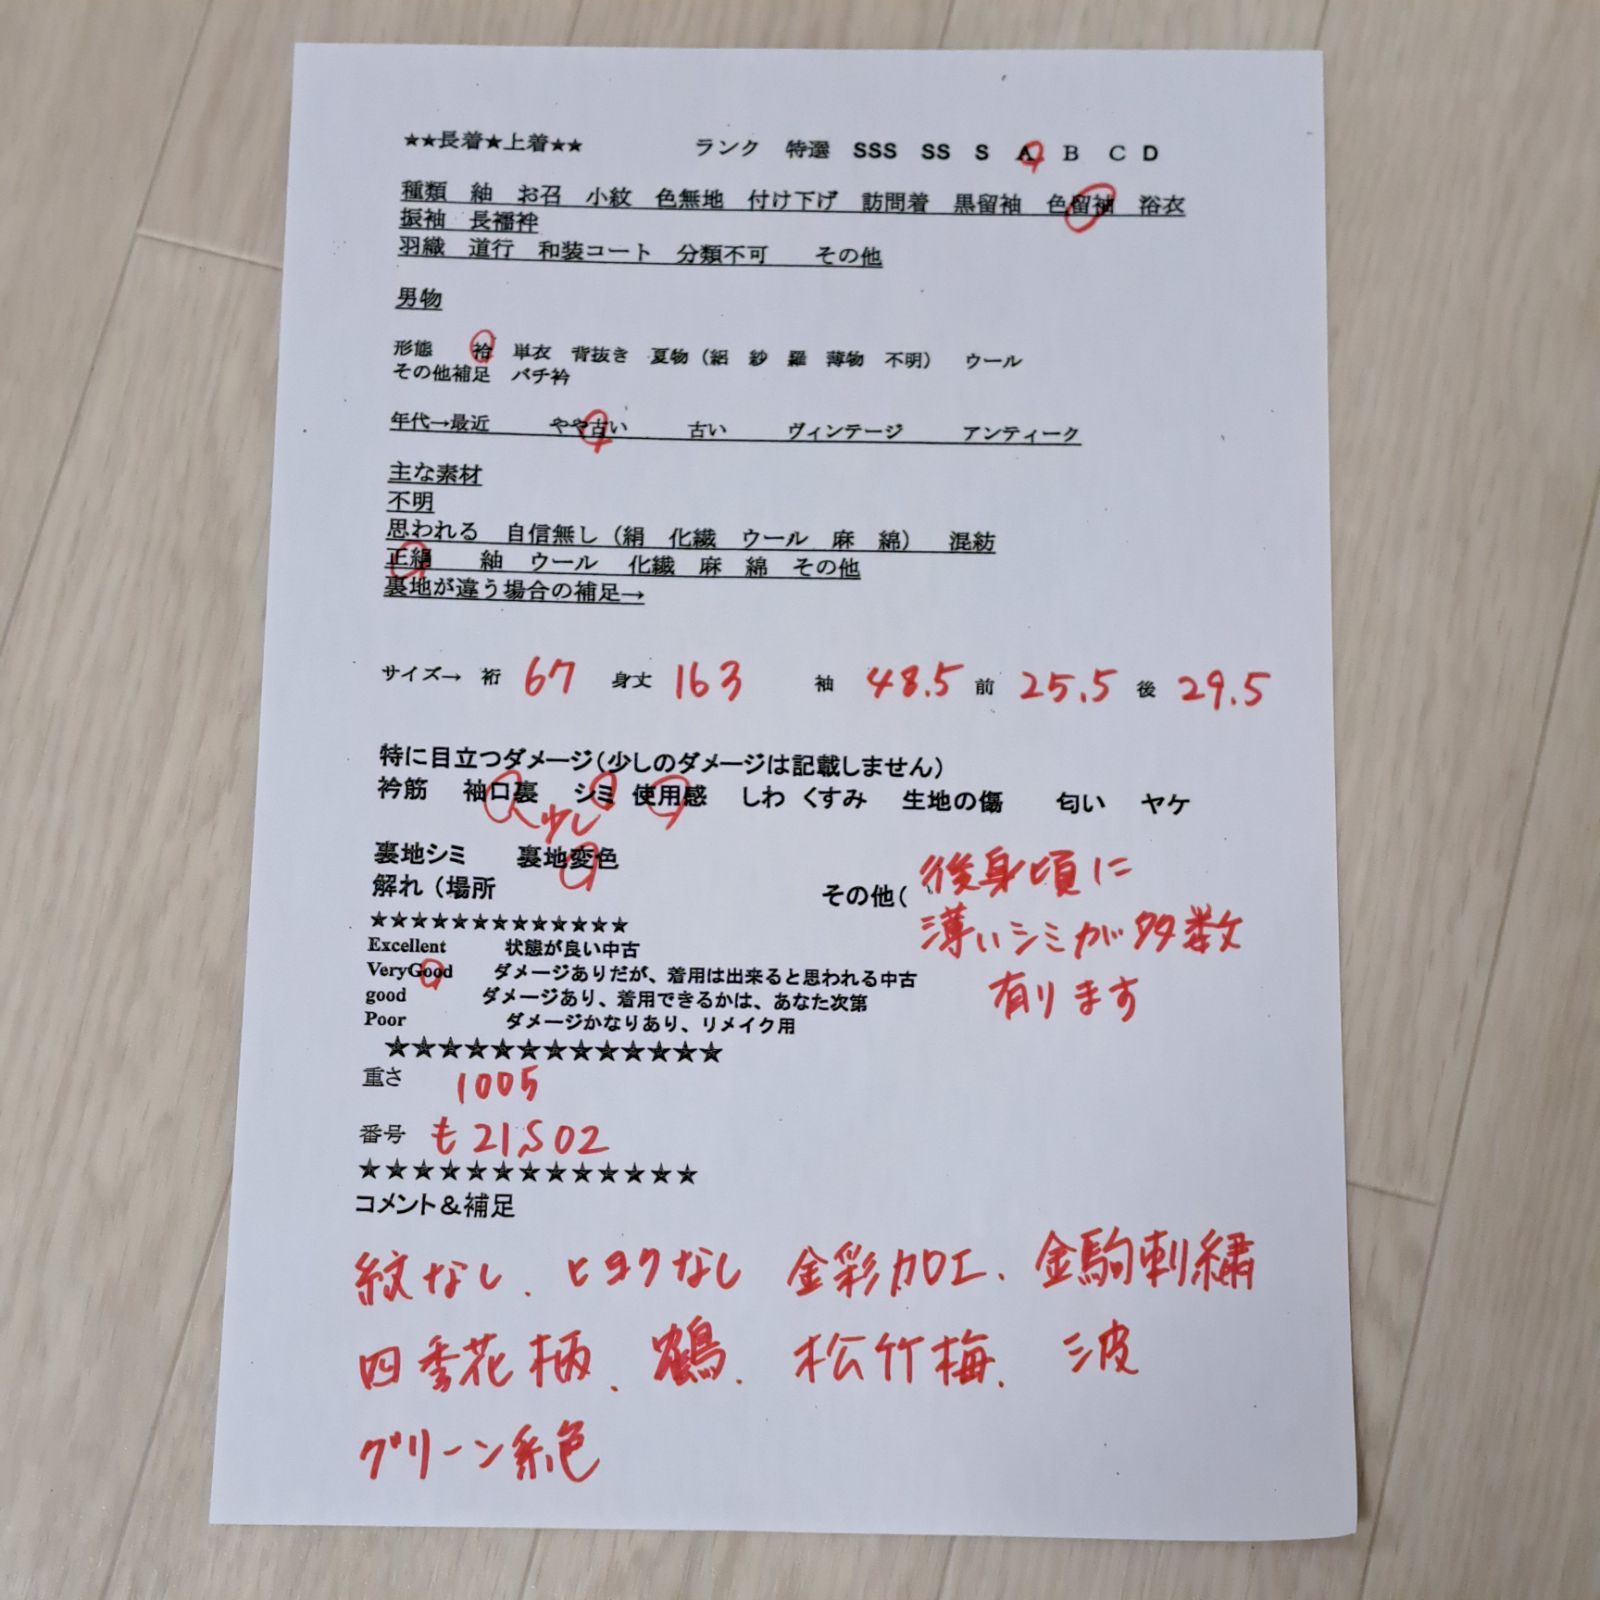 ★★長着★上着★★ ランク 特選 SSS SS S A B C D
種類 紬 お召 小紋 色無地 付け下げ 訪問着 黒留袖 色留袖 浴衣
振袖 長襦袢
羽織 道行 和装コート 分類不可 その他
男物
形態 袷 単衣 背抜き 夏物(絽 紗 羅 薄物 不明) ウール
その他補足 バチ衿
年代→最近 やや古い 古い ヴィンテージ アンティーク
主な素材
不明
思われる 自信無し(絹 化繊 ウール 麻 綿) 混紡
正絹 紬 ウール 化繊 麻 綿 その他
裏地が違う場合の補足→
サイズ→ 裄 67 身丈 163 袖 48.5 前 25.5 後 29.5
特に目立つダメージ(少しのダメージは記載しません)
衿筋 袖口裏 シミ 使用感 しわ くすみ 生地の傷 匂い ヤケ
少し
裏地シミ 裏地変色
解れ(場所 その他( 後身頃に
薄いシミが多数
有ります
★★★★★★★★★★★★★
Excellent 状態が良い中古
VeryGood ダメージありだが、着用は出来ると思われる中古
good ダメージあり、着用できるかは、あなた次第
Poor ダメージかなりあり、リメイク用
★★★★★★★★★★★★★
重さ 1005
番号 も21,502
★★★★★★★★★★★★★
コメント＆補足
紋なし、ヒヨクなし 金彩加工、金駒刺繍
四季花柄、鶴、松竹梅、波
グリーン系色